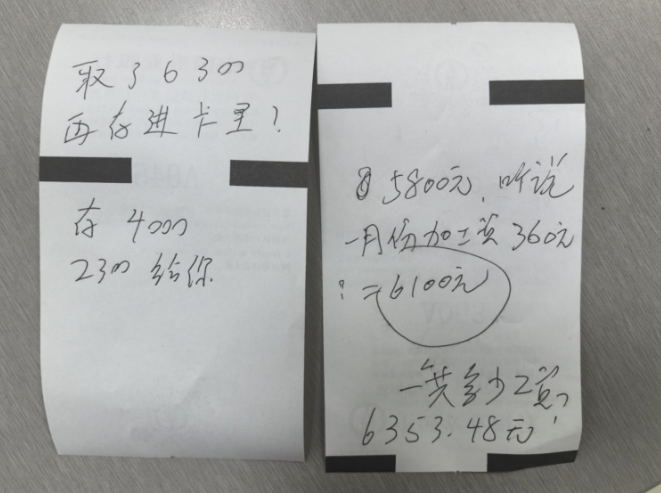 取了6300
再存进卡里?
存 4000
2300 给你
5800元, 听说
一月份加工资 360元
: =6100元
一共多少工资?
6353.48元